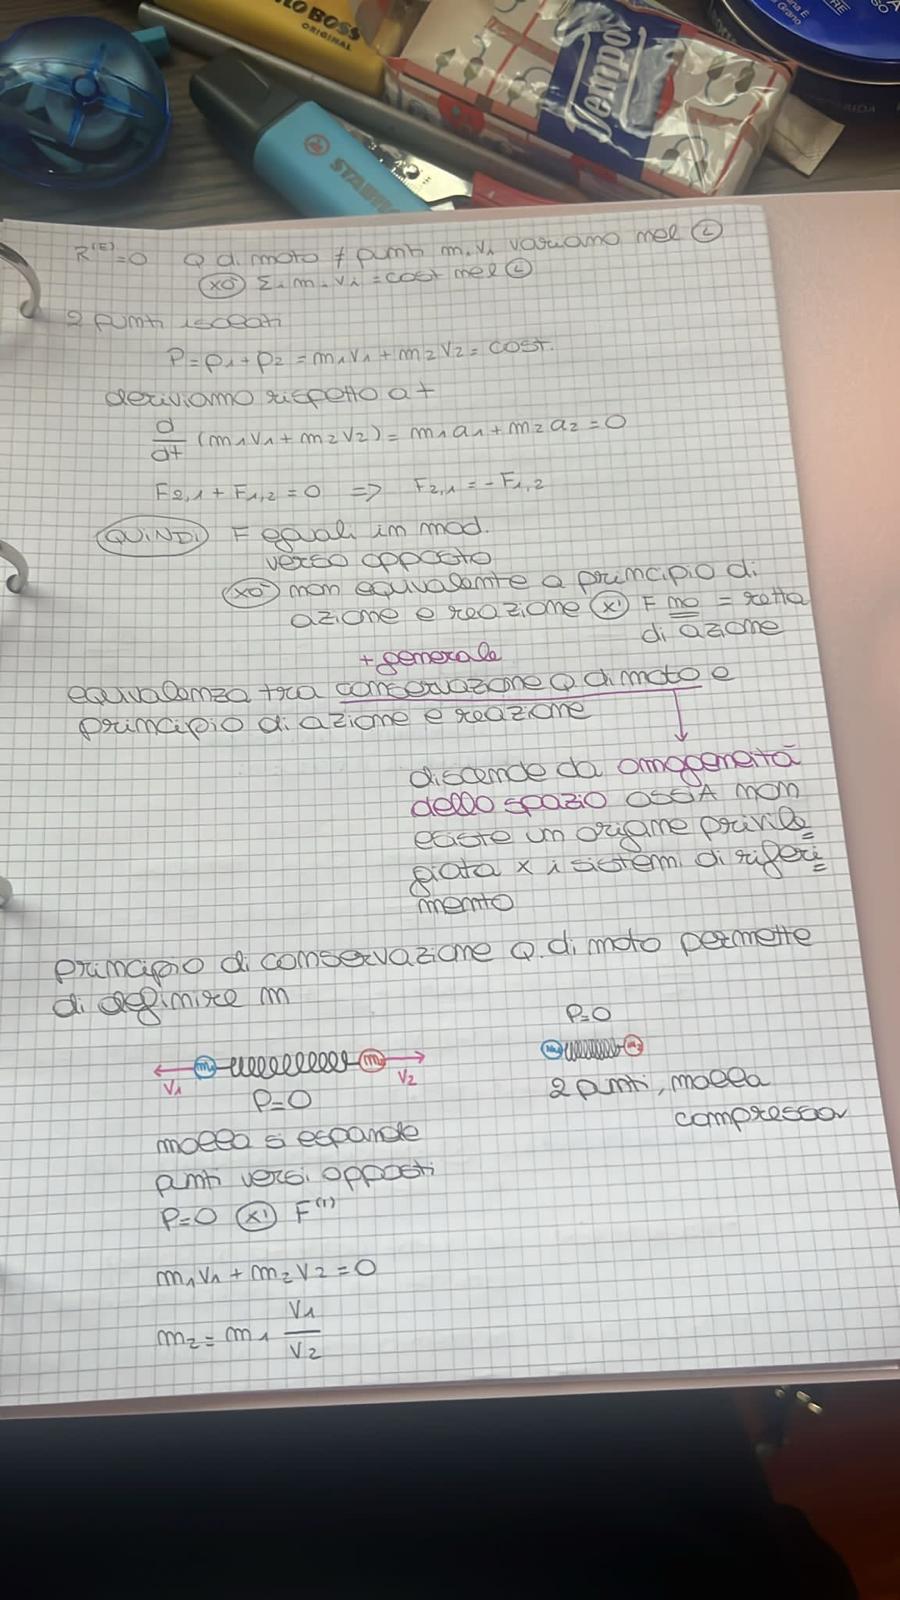 LO BOSS
ORIGINAL
Tempo
STABILO
R^(E)=0 Q di moto ≠ punti mᵢvᵢ variano nel (t)
(xò) Σᵢ mᵢ vᵢ = cost nel (t)
2 punti isolati
P = p₁ + p₂ = m₁v₁ + m₂v₂ = cost.
deriviamo rispetto a t
d/dt (m₁v₁ + m₂v₂) = m₁a₁ + m₂a₂ = 0
F₂,₁ + F₁,₂ = 0 => F₂,₁ = -F₁,₂
(QUINDI) F eguali in mod.
verso opposto
(xò) non equivalente a principio di
azione e reazione (x') F no = retta
di azione
+ generale
equivalenza tra conservazione Q di moto e
principio di azione e reazione
discende da omogeneità
dello spazio OSSIA non
esiste un origine privile
giata x i sistemi di riferi
mento
principio di conservazione Q. di moto permette
di definire m
P=0
m₁ m₂
m₁ m₂
v₁ v₂
P=0
2 punti, molla
compressa
molla si espande
punti versi opposti
P=0 (x') F^(I)
m₁v₁ + m₂v₂ = 0
m₂ = m₁ v₁/v₂